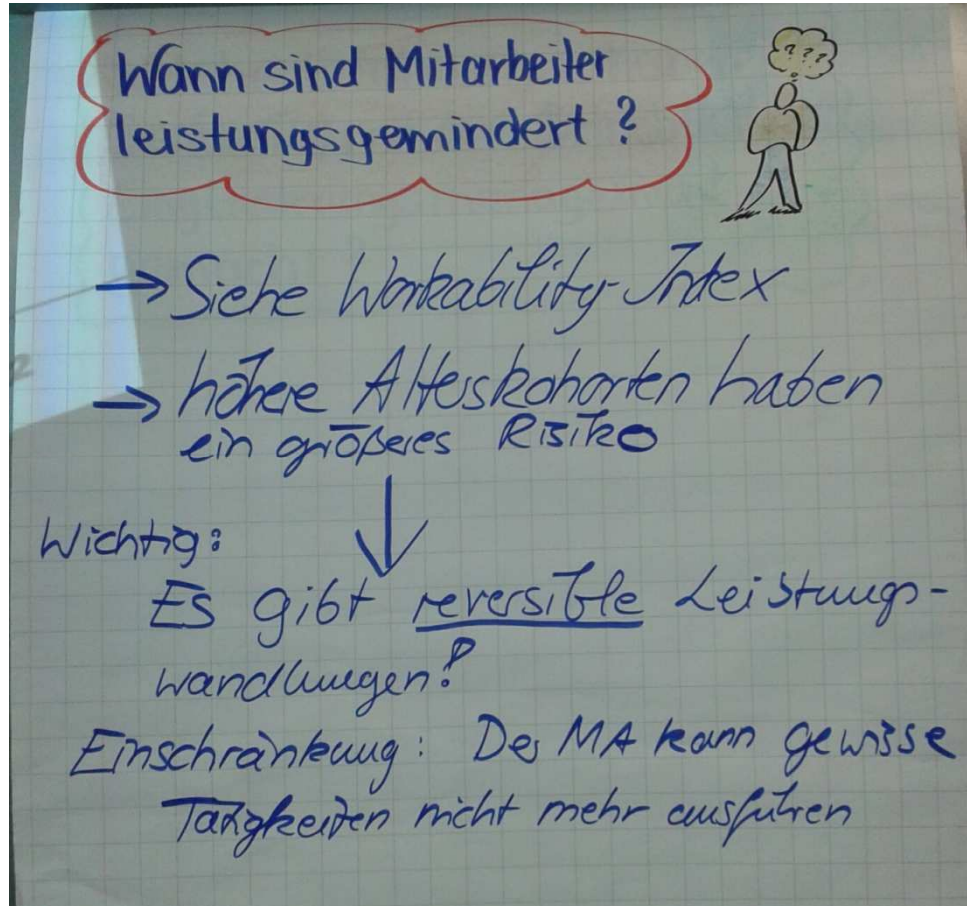 Wann sind Mitarbeiter
leistungsgemindert ?
???
→ Siehe Workability-Index
→ höhere Alterskohorten haben
ein größeres Risiko
Wichtig:
Es gibt reversible Leistungs-
wandlungen!
Einschränkung: Der MA kann gewisse
Tätigkeiten nicht mehr ausführen